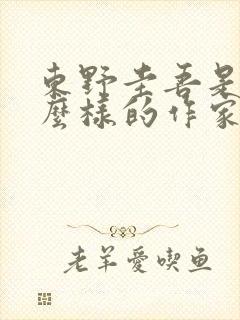 東野圭吾是
麼樣的作家
老羊愛喫鱼